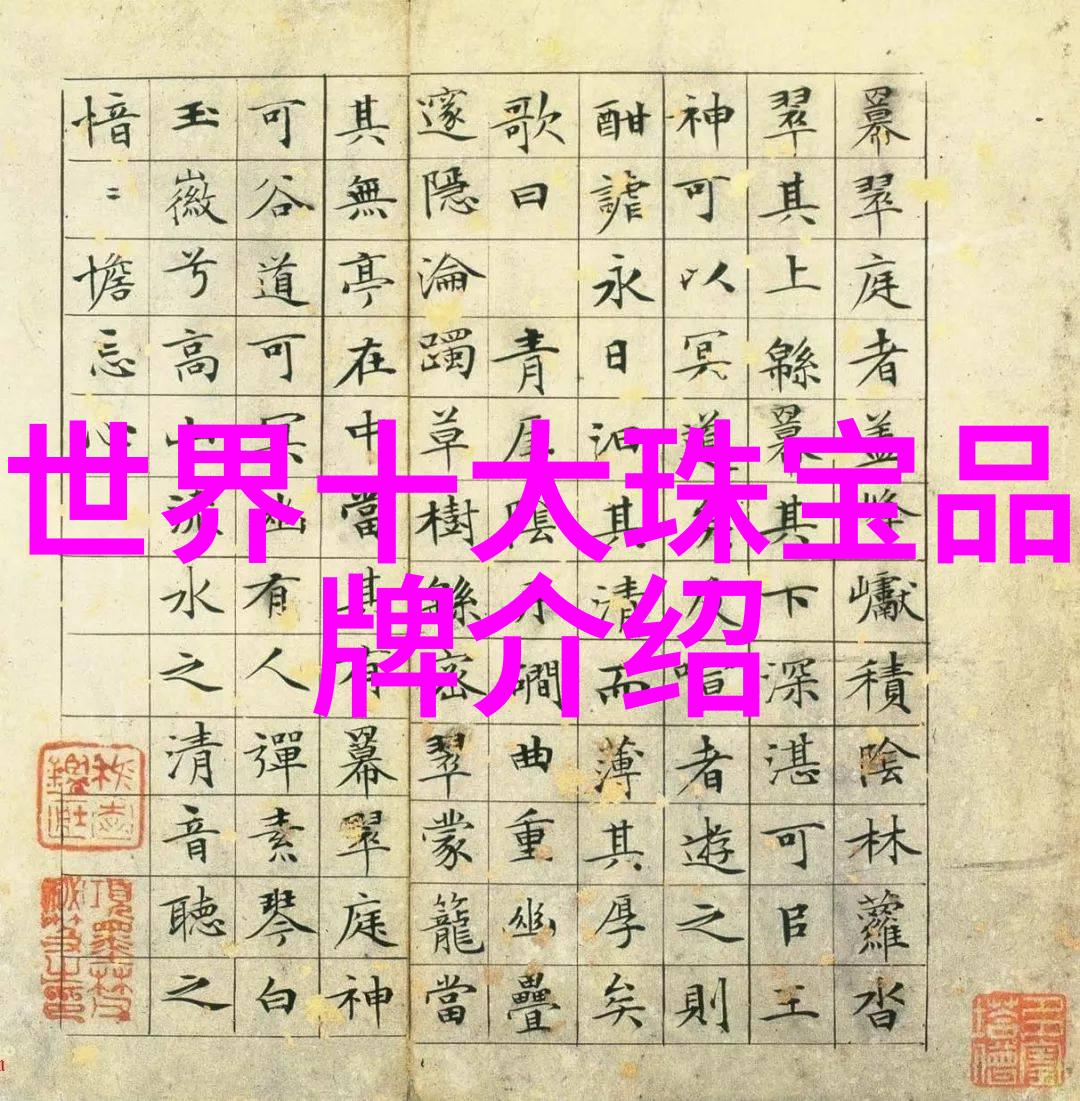 世界十大珠宝品
牌介绍
羃翠庭者盖巘積陰林蘿沓
翠其上緜羃其下深湛可㠯王
神可以冥道矣及喧者遊之則
酣謔永日汩其清而薄其厚矣
歌曰 青崖陰磵曲重幽疊
邃隱淪躅草樹緜密翠蒙籠當
其無亭在中當其有羃翠庭神
可谷道可冥幽有人彈素琴白
玉徽兮高山流水之清音聽之
愔〻憺忘心